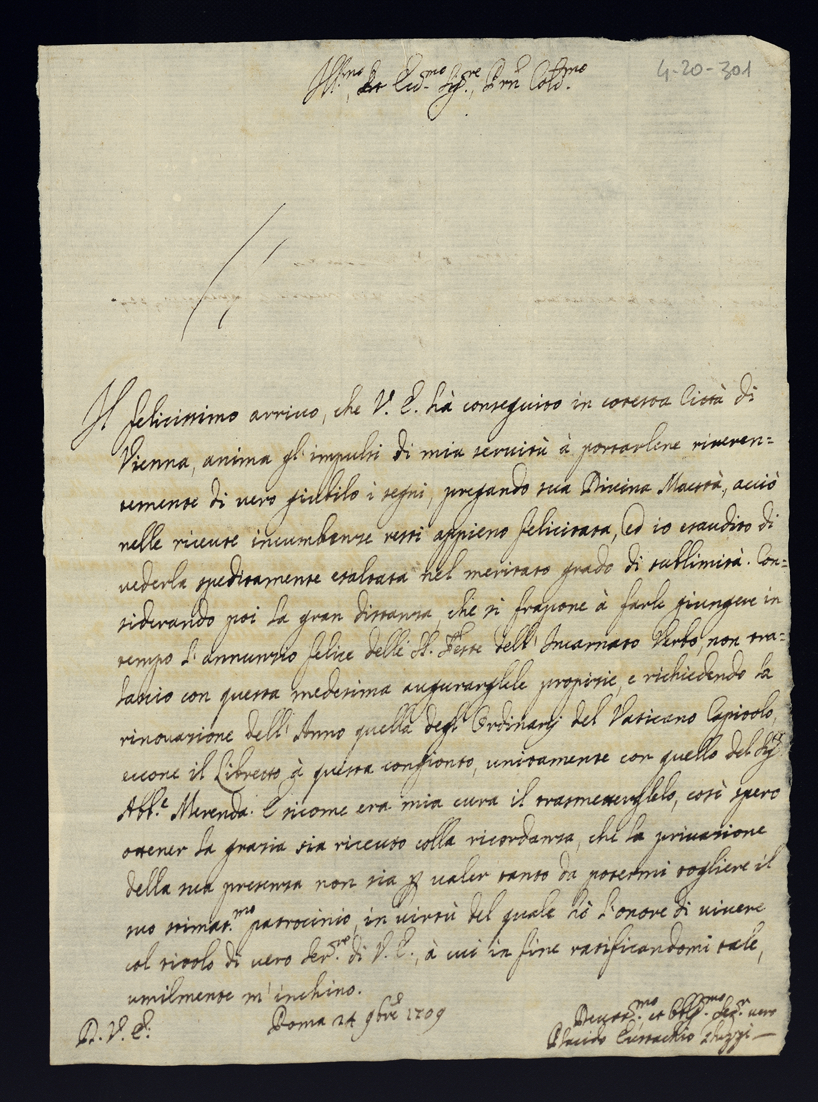 4-20-301
Ill.mo, et Ecc.mo Sig.re, Prn Colo.mo
Il felicissimo arrivo, che V. E. hà conseguito in cotesta Città di
Vienna, anima gl'impulsi di mia servitù à portarlene riveren=
temente di vero giubilo i segni, pregando sua Divina Maestà, acciò
nelle riceute incumbenze resti appieno felicitata, ed io esaudito di
vederla speditamente esaltata nel meritato grado di sublimità. Con=
siderando poi la gran distanza, che si frapone à farle giungere in
tempo l'annunzio felice delle SS. Feste dell'Incarnato Verbo, non tra=
lascio con questa medesima augurarglele propizie, e richiedendo la
rinovazione dell'Anno quella degl'Ordinarj del Vaticano Capitolo,
eccone il Libretto à questa congionto, unitamente con quello del Sig.r
Abb.e Merenda. E sicome era mia cura il trasmeterglelo, così spero
ottener la grazia sia riceuto colla ricordanza, che la privazione
della sua presenza non sia p valer tanto da potermi togliere il
suo stimat.mo patrocinio, in virtù del quale hò l'onore di vivere
col titolo di vero Ser.re di V. E., à cui in fine ratificandomi tale,
umilmente m'inchino.
D. V. E. Roma 24 9bre 1709
Devot.mo, et Obl.mo Ser.r vero
Placido Eustachio